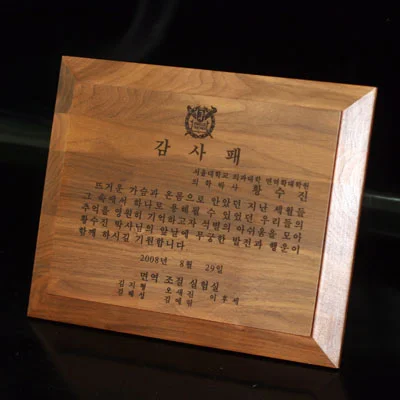 감 사 패
서울대학교 의과대학 면역학대학원
의 학 박 사 황 수 진
뜨거운 가슴과 온몸으로 안았던 지난 세월들
그 속에서 하나로 용해될 수 있었던 우리들의
추억을 영원히 기억하고자 석별의 아쉬움을 모아
황수진 박사님의 앞날에 무궁한 발전과 행운이
함께 하시길 기원합니다
2008년 8월 29일
면역 조절 실험실
김 지 형 오 세 진 이 호 재